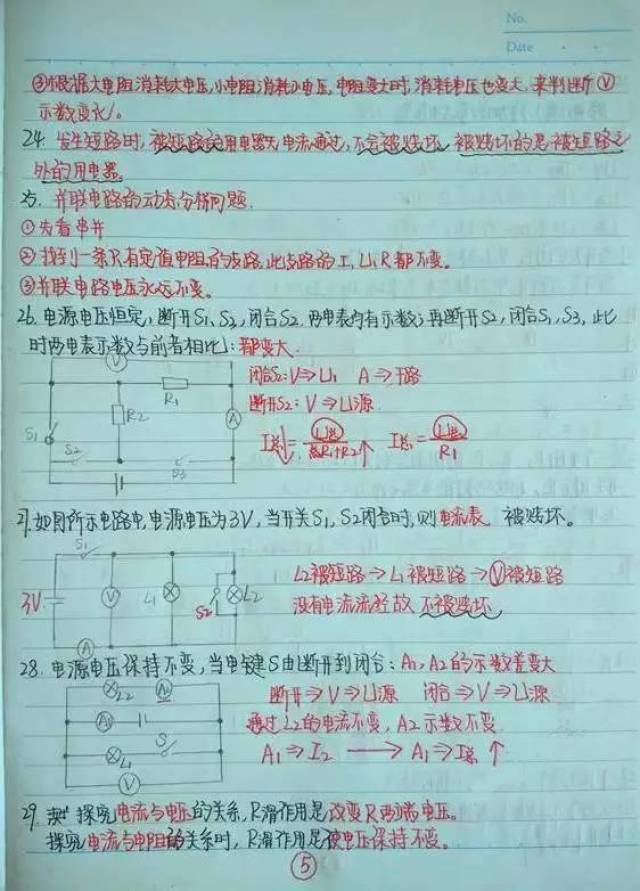 No.
Date
③根据大电阻消耗大电压,小电阻消耗小电压,电阻变大时,消耗电压也变大,来判断Ⓥ
示数变化。
24. 发生短路时,被短路的用电器无电流通过,不会被烧坏,被烧坏的是被短路之
外的用电器。
25. 并联电路的动态分析问题.
①先看串并
②找到一条只有定值电阻的支路,此支路的I,U,R都不变。
③并联电路电压永远不变。
26. 电源电压恒定,断开S₁、S₃,闭合S₂,两电表均有示数;再断开S₂,闭合S₁,S₃,此
时两电表示数与前者相比:都变大.
V
闭合S₂:V⇒U₁ A⇒干路
R₁
断开S₂:V⇒U源
R₂
A
S₁
I总↓=U总/R₁+R₂↑ I总=U总/R₁
S₂
S₃
27. 如图所示电路中,电源电压为3V,当开关S₁,S₂闭合时,则电流表 被烧坏。
S₁
L₂被短路→L₁被短路→Ⓥ被短路
3V V L₁ S₂ L₂
没有电流流经故 不被烧坏
A
28. 电源电压保持不变,当电键S由断开到闭合:A₁,A₂的示数差变大
L₂
断开⇒V⇒U源 闭合⇒V⇒U源
通过L₂的电流不变,A₂示数不变
S
L₁
A₁⇒I₂ → A₁⇒I总↑
V
29. 探究电流与电压的关系,R滑作用是改变R两端电压。
探究电流与电阻的关系时,R滑作用是使电压保持不变。
⑤